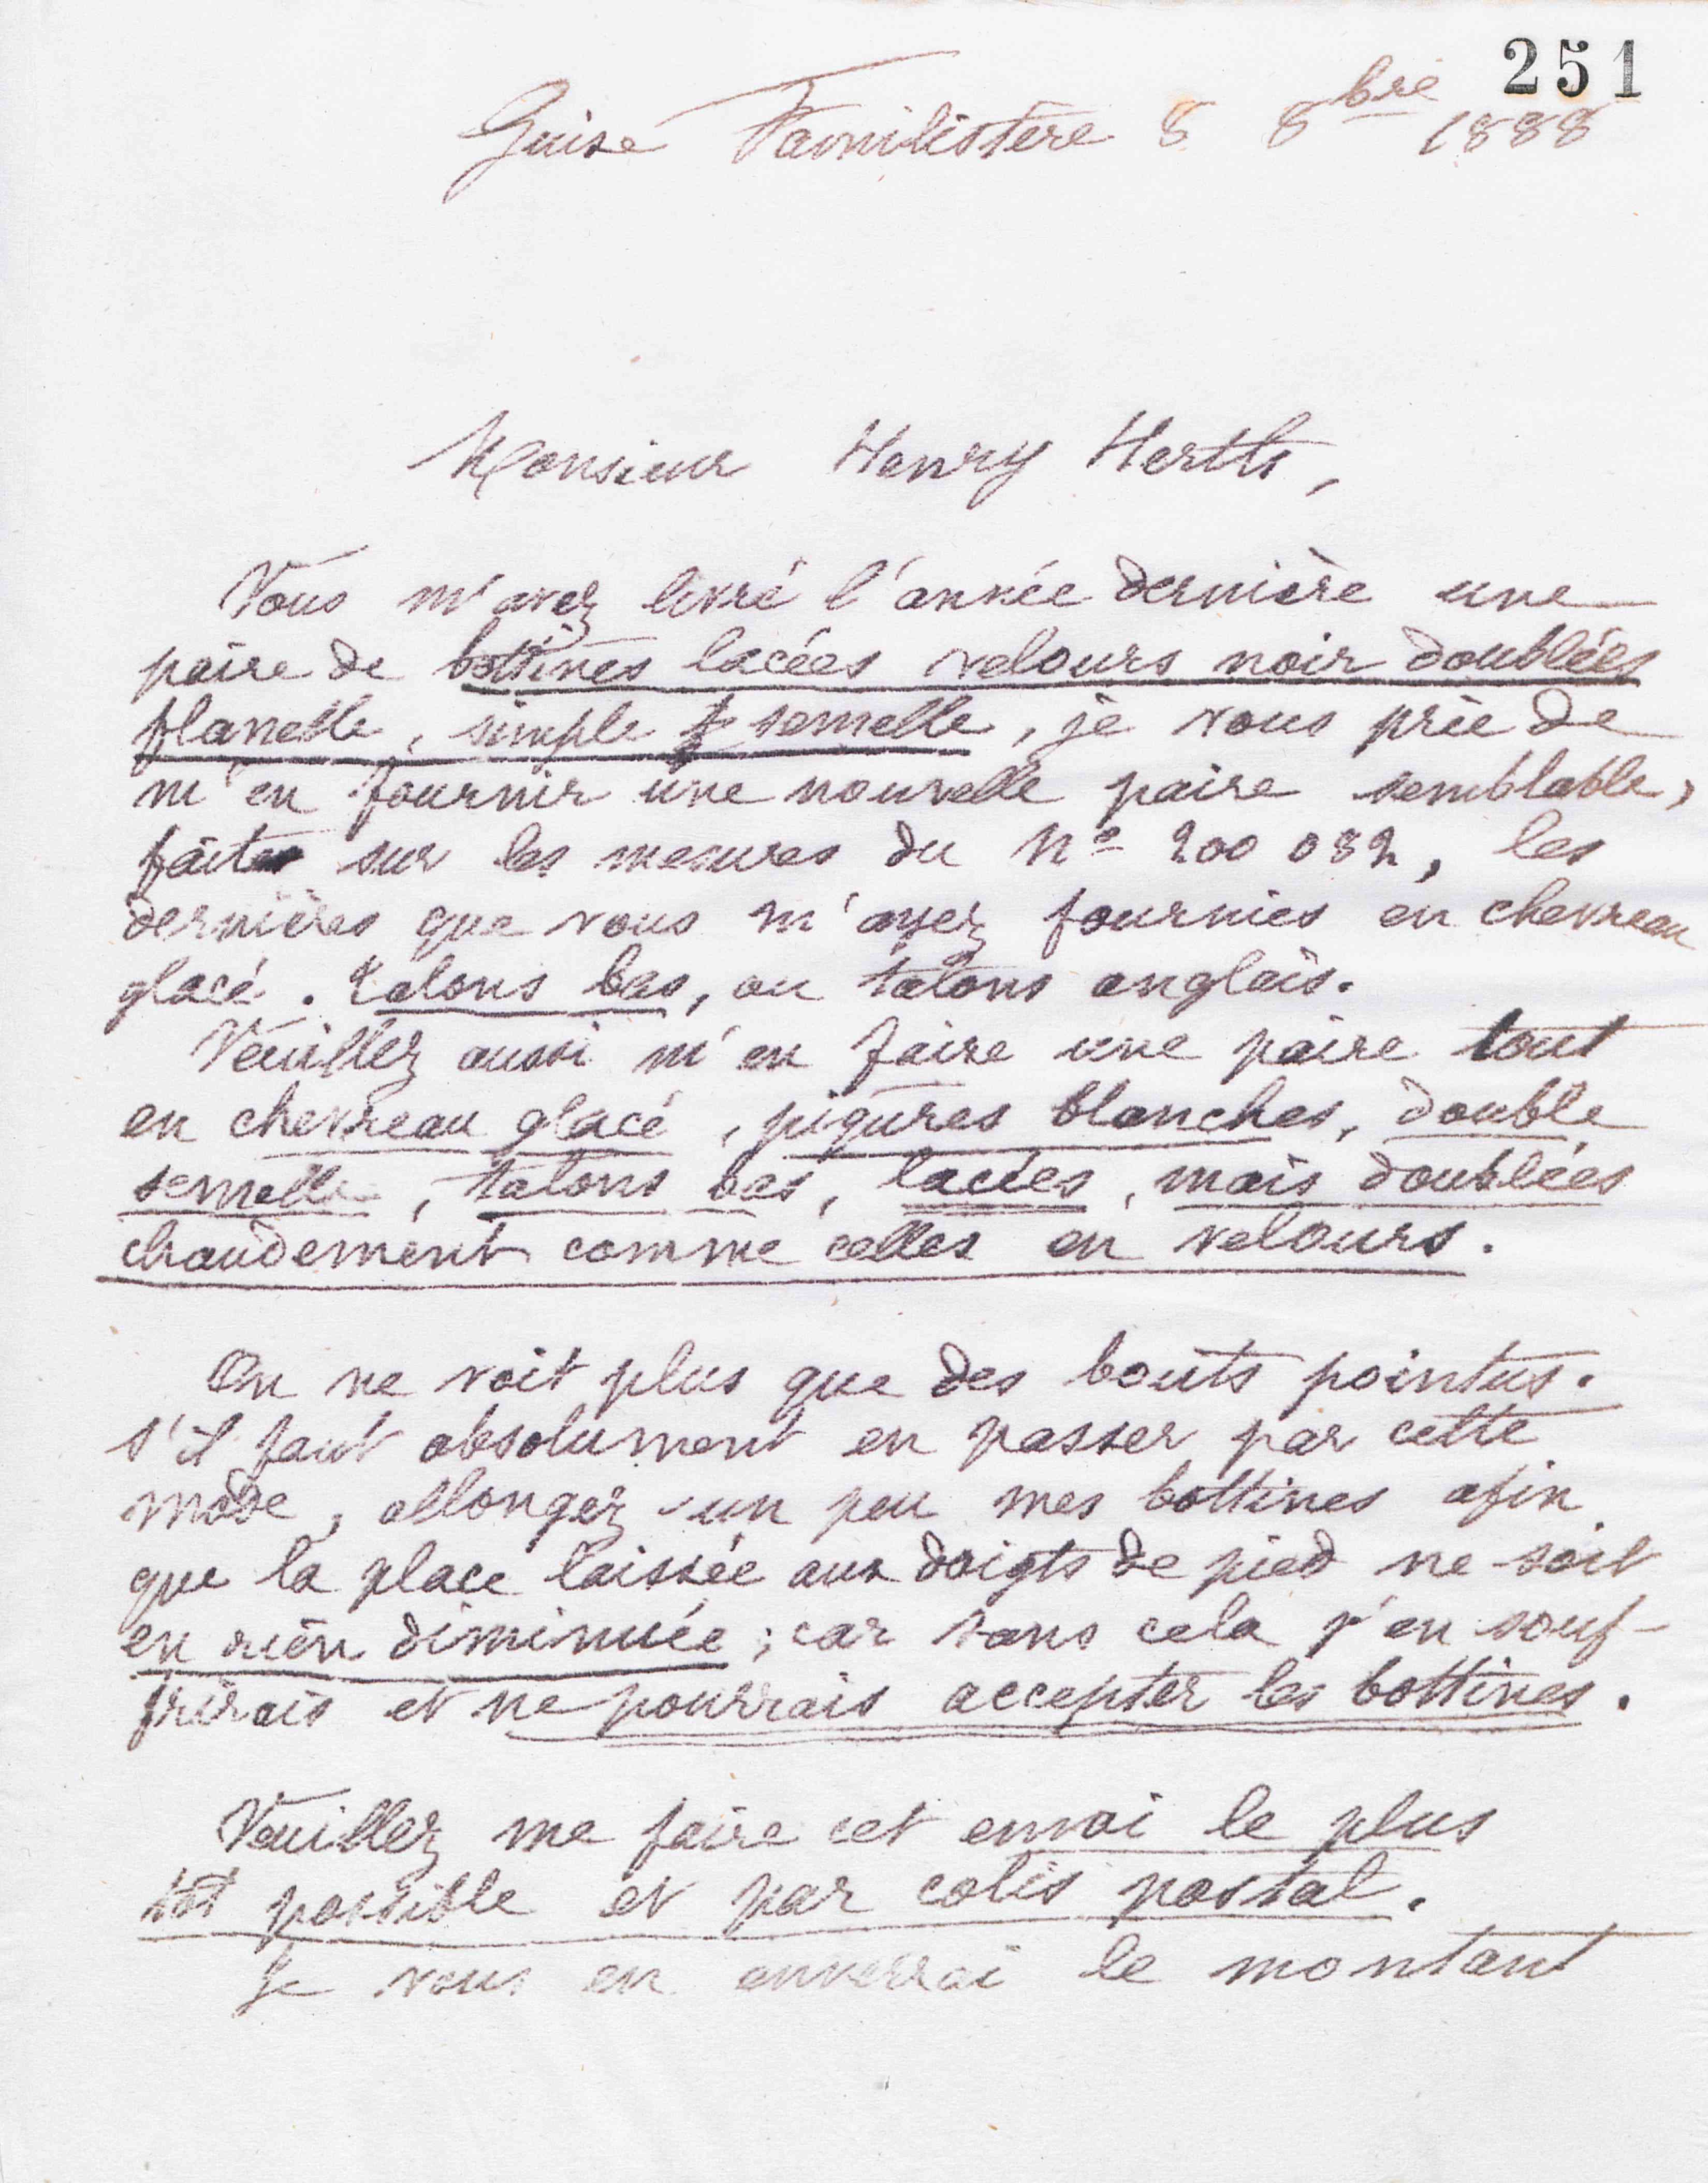 251
Guise Familistère 8 8bre 1888
Monsieur Henry Herths,
Vous m'avez livré l'année dernière une
paire de bottines lacées velours noir doublées
flanelle, simple semelle, je vous prie de
m'en fournir une nouvelle paire semblable,
faite sur les mesures du No 200 082, les
dernières que vous m'ayez fournies en chevreau
glacé. talons bas, ou talons anglais.
Veuillez aussi m'en faire une paire tout
en chevreau glacé, piqûres blanches, double
semelle, talons bas, lacées, mais doublées
chaudement comme celles en velours.
On ne voit plus que des bouts pointus.
s'il faut absolument en passer par cette
mode, allongez un peu mes bottines afin
que la place laissée aux doigts de pied ne soit
en rien diminuée ; car sans cela j'en souf-
frirais et ne pourrais accepter les bottines.
Veuillez me faire cet envoi le plus
tôt possible et par colis postal.
Je vous en enverrai le montant